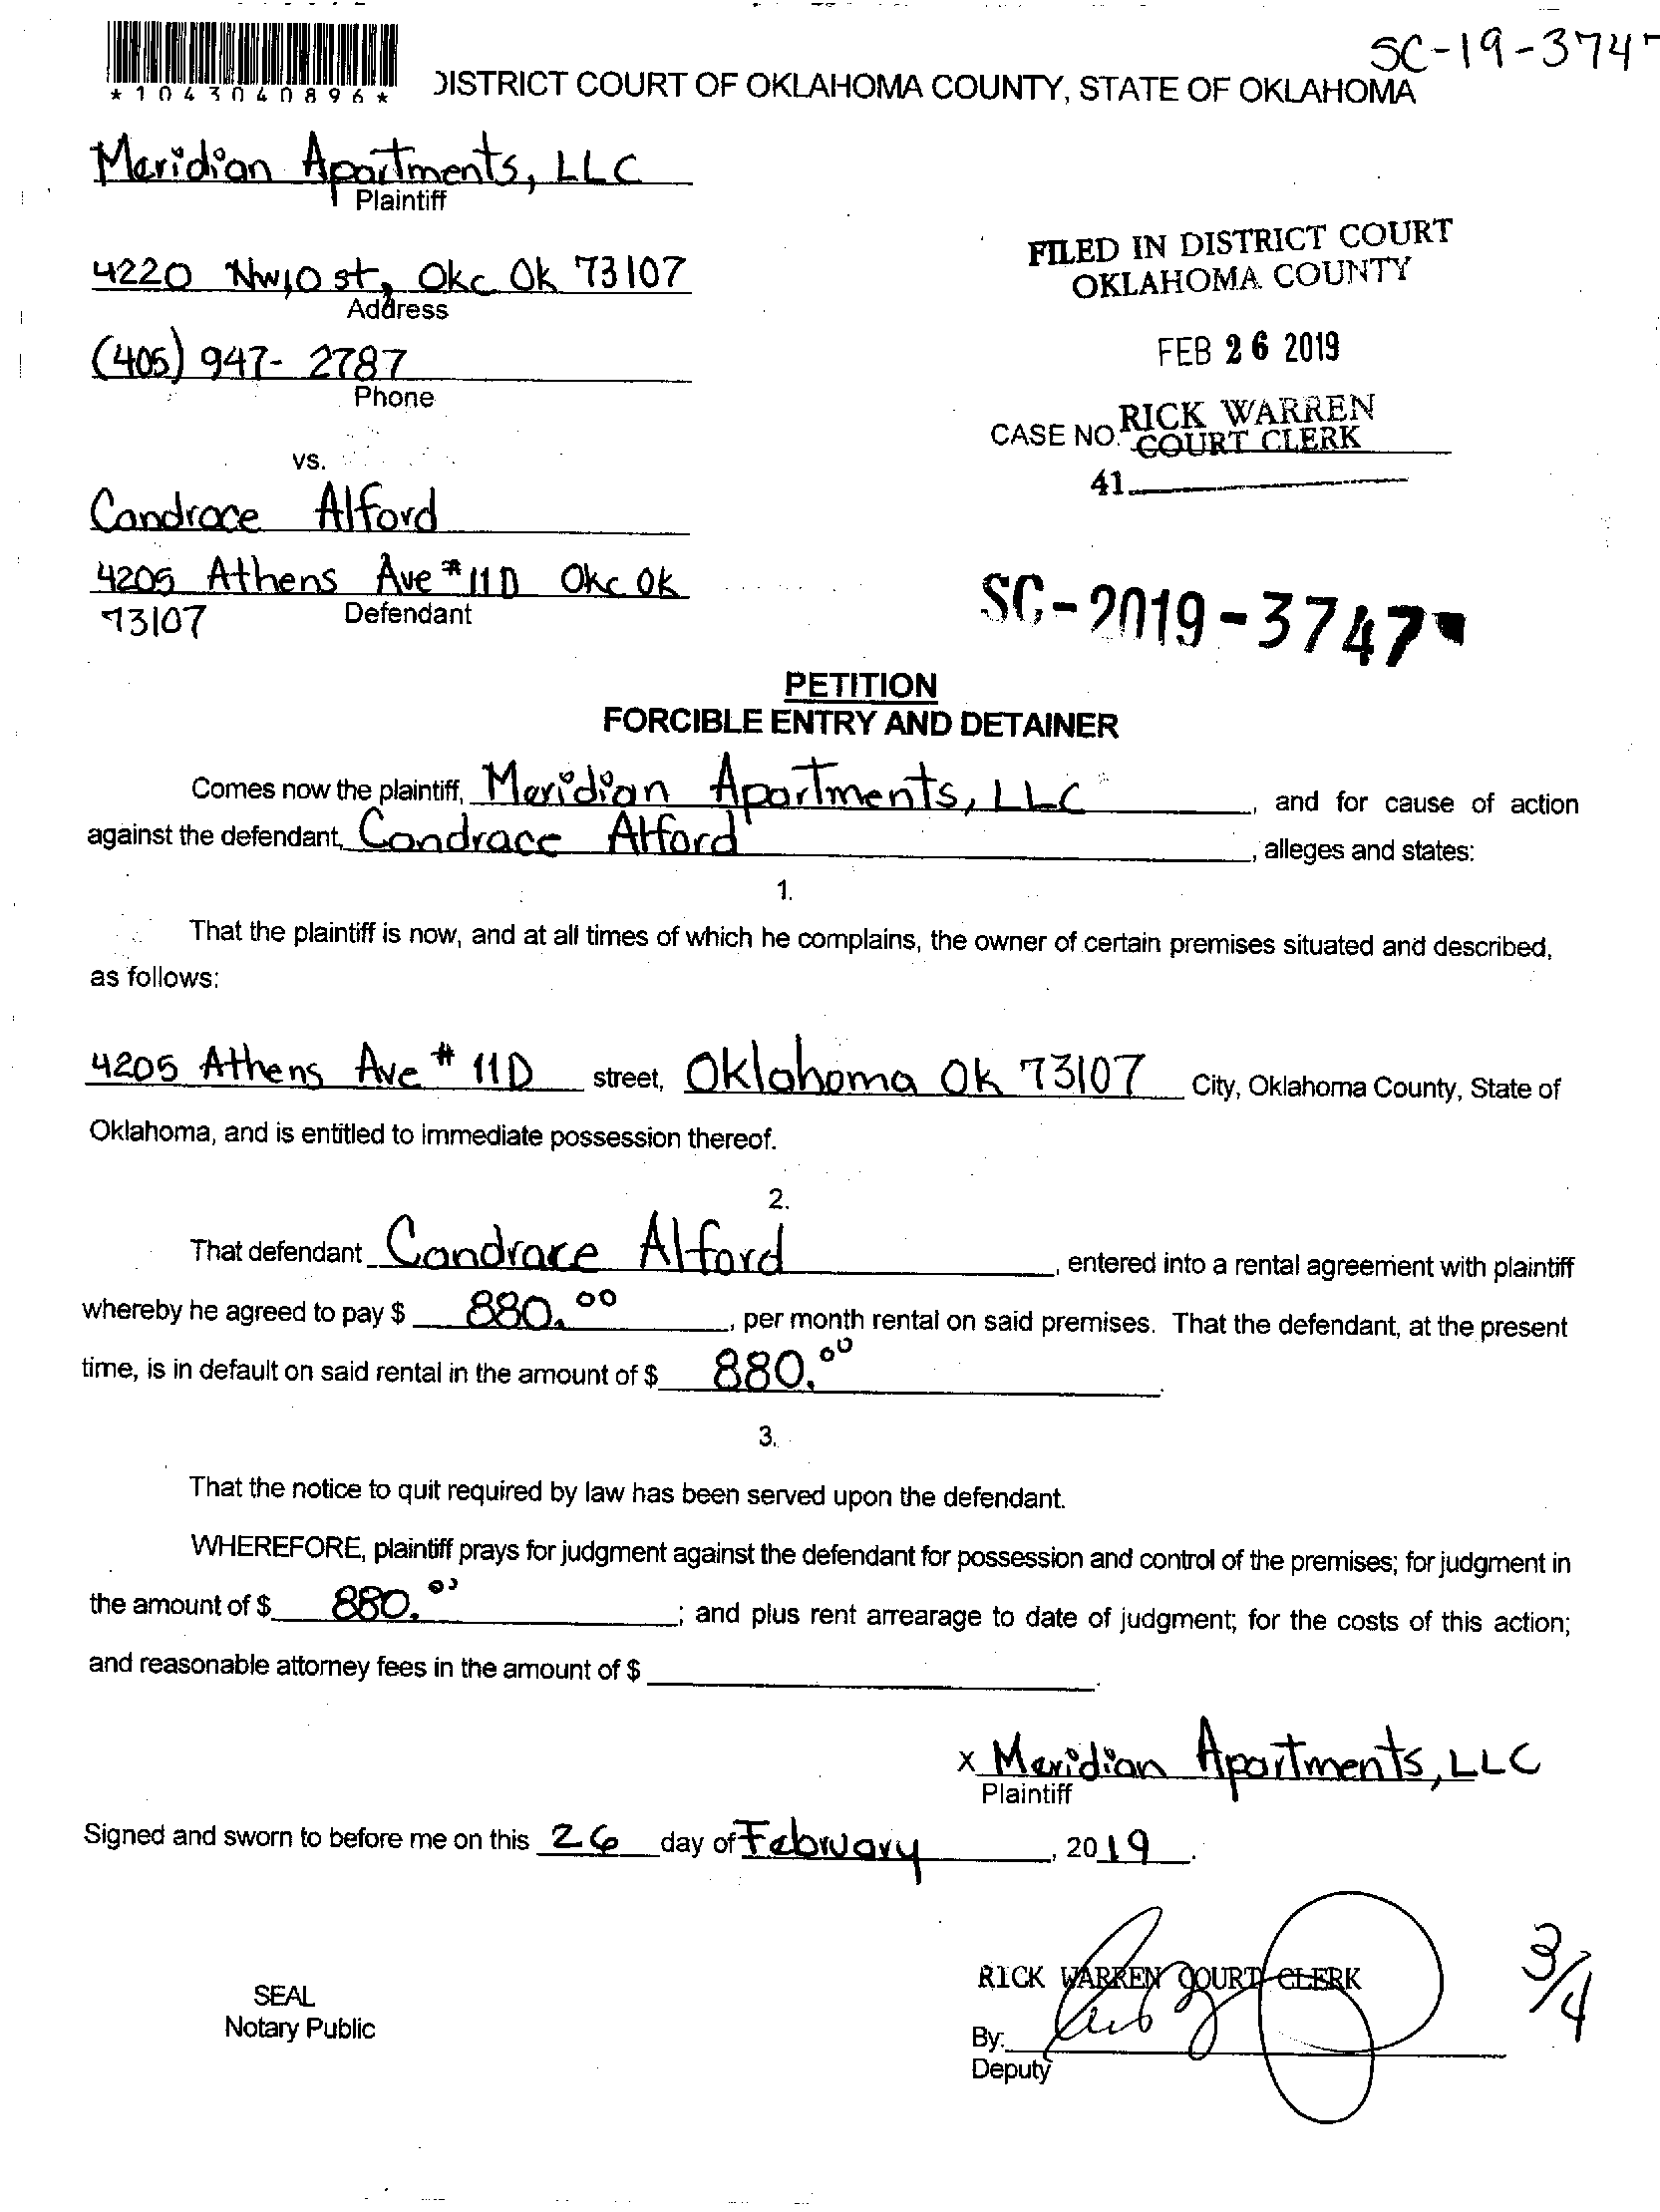 SC-19-3747
*1043040896*
DISTRICT COURT OF OKLAHOMA COUNTY, STATE OF OKLAHOMA
Meridian Apartments, LLC
Plaintiff
FILED IN DISTRICT COURT
OKLAHOMA COUNTY
4220 NW10 st, Okc Ok 73107
Address
FEB 26 2019
(405) 947-2787
Phone
RICK WARREN
CASE NO. COURT CLERK
vs.
41
Candrace Alford
4205 Athens Ave #11D Okc Ok
73107 Defendant
SC-2019-3747
PETITION
FORCIBLE ENTRY AND DETAINER
Comes now the plaintiff, Meridian Apartments, LLC, and for cause of action
against the defendant, Candrace Alford, alleges and states:
1.
That the plaintiff is now, and at all times of which he complains, the owner of certain premises situated and described,
as follows:
4205 Athens Ave # 11D street, Oklahoma Ok 73107 City, Oklahoma County, State of
Oklahoma, and is entitled to immediate possession thereof.
2.
That defendant Candrace Alford, entered into a rental agreement with plaintiff
whereby he agreed to pay $ 880.00, per month rental on said premises. That the defendant, at the present
time, is in default on said rental in the amount of $ 880.00.
3.
That the notice to quit required by law has been served upon the defendant.
WHEREFORE, plaintiff prays for judgment against the defendant for possession and control of the premises; for judgment in
the amount of $ 880.00; and plus rent arrearage to date of judgment; for the costs of this action;
and reasonable attorney fees in the amount of $
x Meridian Apartments, LLC
Plaintiff
Signed and sworn to before me on this 26 day of February, 2019.
RICK WARREN COURT CLERK
3/4
SEAL
Notary Public
By:
Deputy